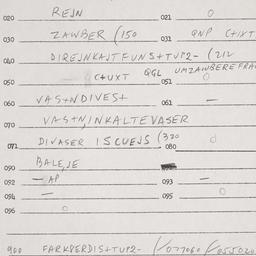 020 REJN 021 O
030 ZAWBER (150 031 QNP C+IXT
040 DIREJNKAJTFUNS+TVP2- (212
050 C+UXT QGL UMZAWBEREFRA 052 O
060 VAS+NDIVES+ 061 —
070 VAS+N,INKALTEVASER
071 DIVASER ISCUEJS (320 080 O
090 BALEJE
092 — AP 093 —
094 — 095 O
096 O
900 FARKBERDIS+TVP2- (/077060 (/055020